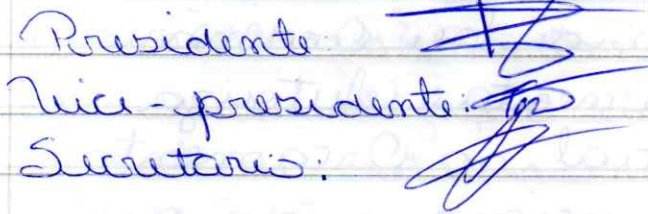 Presidente:
Vice-presidente:
Secretario: